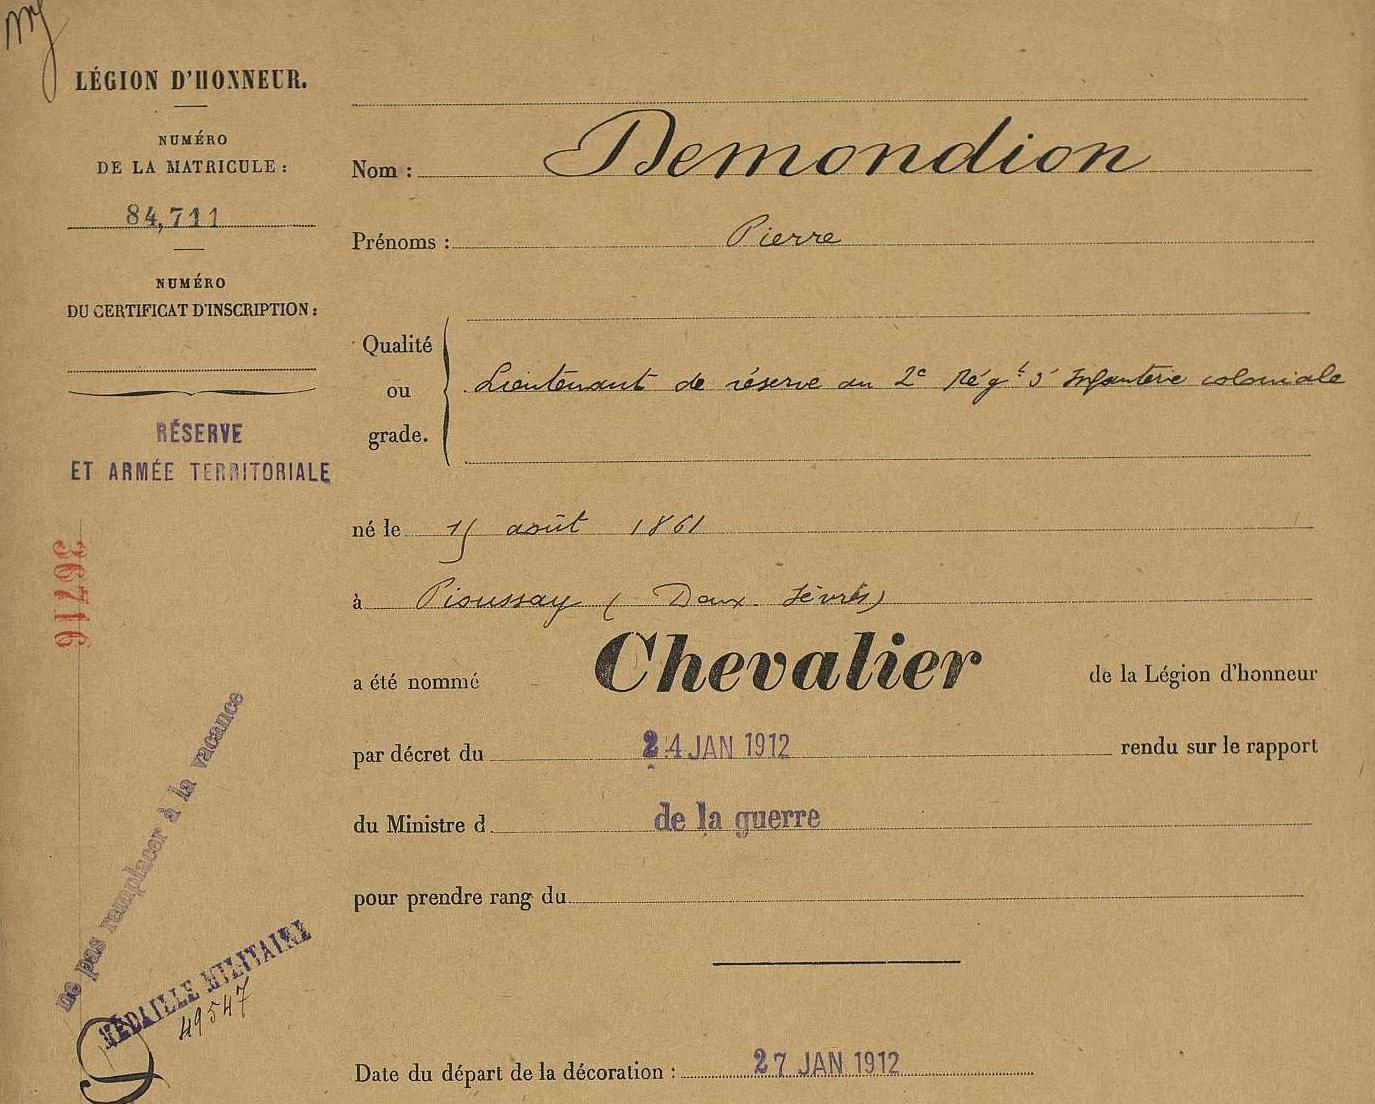 LÉGION D'HONNEUR.
NUMÉRO
DE LA MATRICULE :
84,711
NUMÉRO
DU CERTIFICAT D'INSCRIPTION :
RÉSERVE
ET ARMÉE TERRITORIALE
36716
ne pas remplacer à la vacance
MÉDAILLE MILITAIRE
49547
Nom : Demondion
Prénoms : Pierre
Qualité
ou
grade.
Lieutenant de réserve au 2e Régt d'Infanterie coloniale
né le 15 août 1861
à Pioussay (Deux-Sèvres)
a été nommé Chevalier de la Légion d'honneur
par décret du 24 JAN 1912 rendu sur le rapport
du Ministre d de la guerre
pour prendre rang du
Date du départ de la décoration : 27 JAN 1912